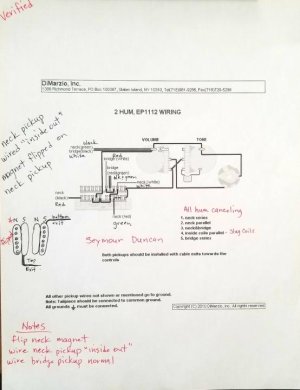 Verified
DiMarzio, Inc.
1388 Richmond Terrace, PO Box 100387, Staten Island, NY 10310, Tel(718)981-9286, Fax(718)720-5296
2 HUM, EP1112 WIRING
neck pickup
wired "inside out"
magnet flipped on
neck pickup
VOLUME
TONE
black
neck(green)
bridge(black)
white
bridge (white)
Red
bridge
(red/green)
neck
(black)
Red
neck (white)
white
neck (red)
green
N S N S
bottom
exit
Top
Exit
Seymour Duncan
All hum canceling
1. neck series
2. neck parallel
3. neck&bridge
4. inside coils parallel - Slug Coils
5. bridge series
Both pickups should be installed with cable exits towards the
controls
All other pickup wires not shown or mentioned go to ground.
Note: Tailpiece should be connected to common ground.
All grounds must be connected.
Copyright (C) 2010 DiMarzio, Inc. All rights reserved.
Notes
flip neck magnet
wire neck pickup "inside out"
wire bridge pickup normal